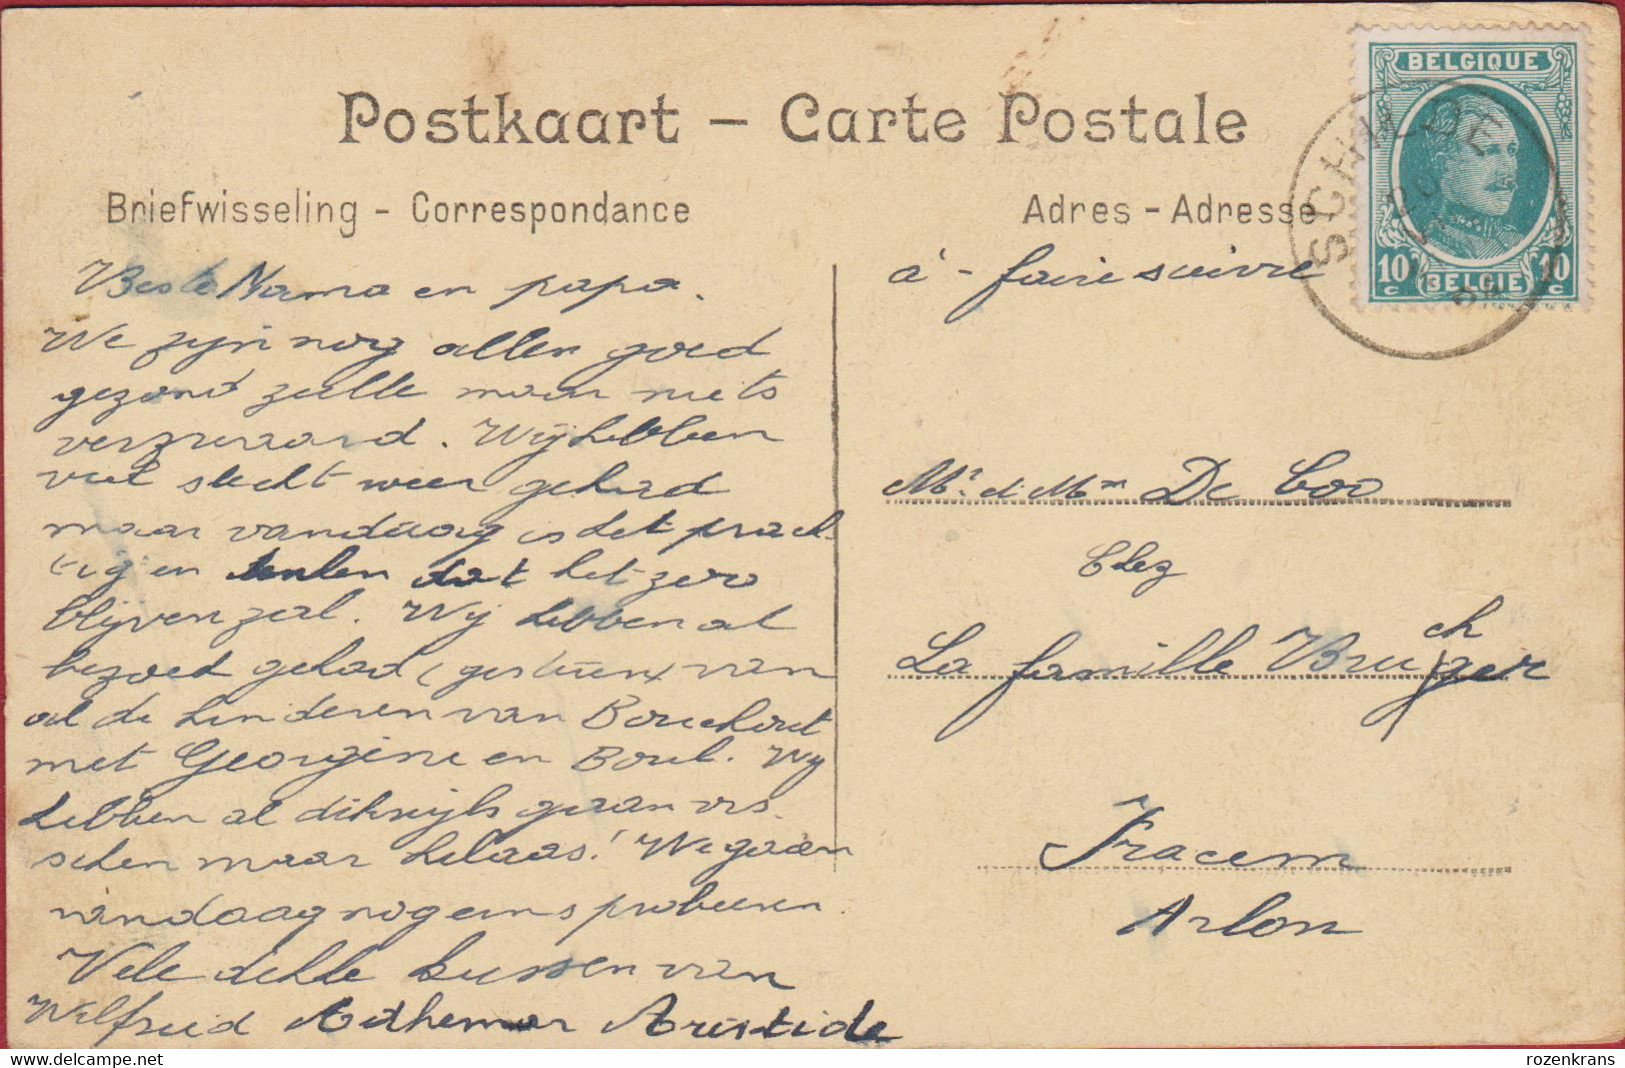 Postkaart – Carte Postale
Briefwisseling - Correspondance
Adres - Adresse
BELGIQUE
10 c BELGIE 10 c
SCHILDE
20
Beste Mama en papa.
We zijn nog allen goed
gezond zulle maar niets
verzwaard. Wij hebben
veel slecht weer gehad
maar vandaag is het prach
tig en denken dat het zoo
blijven zal. Wij hebben al
bezoek gehad (gisteren) van
al de kinderen van Bouchout
met Georgine en Boul. Wij
hebben al dikwijls gaan vis
schen maar helaas! We gaan
vandaag nog eens probeeren.
Vele dikke kussen van
Wilfried Adhemar Aristide
à - faire suivre
Mr. et Mm De Coo
Chez
La famille Bruch ger
Fracem
Arlon
www.delcampe.net
rozenkrans